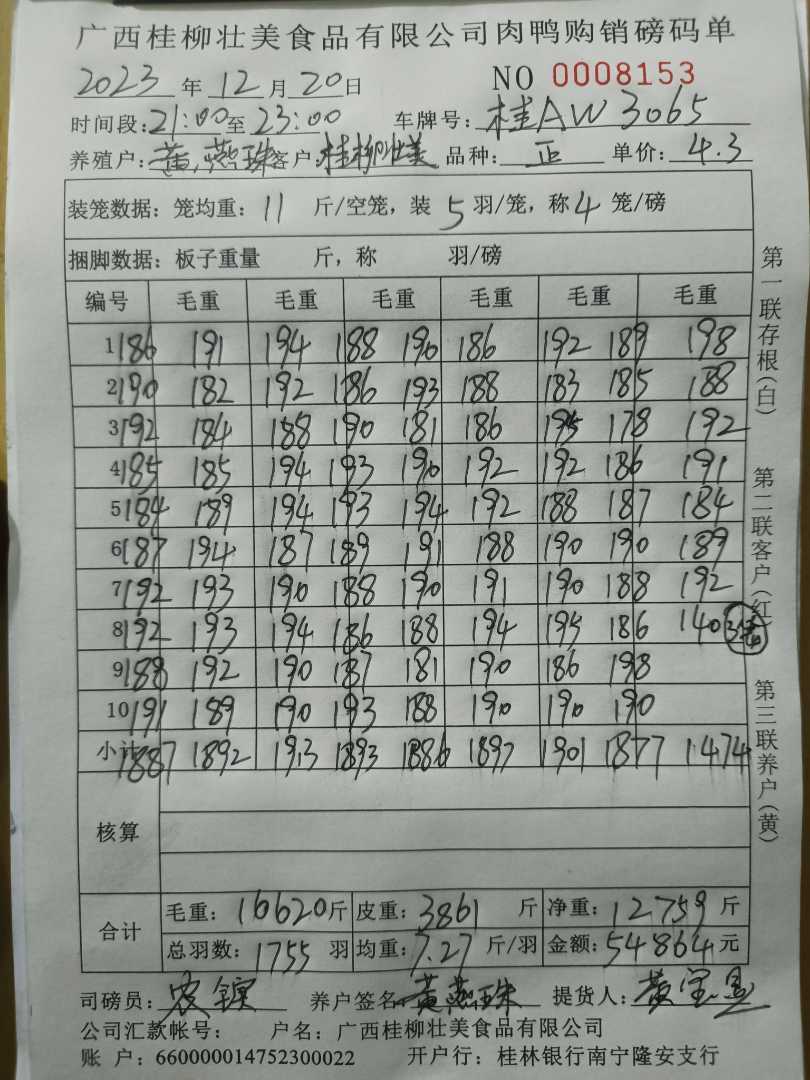 广西桂柳壮美食品有限公司肉鸭购销磅码单
2023 年 12 月 20 日 NO 0008153
时间段: 21:00 至 23:00 车牌号: 桂AW3065
养殖户: 黄燕珠 客户: 桂柳壮美 品种: 正 单价: 4.3
装笼数据: 笼均重: 11 斤/空笼, 装 5 羽/笼, 称 4 笼/磅
捆脚数据: 板子重量 斤, 称 羽/磅
编号 毛重 毛重 毛重 毛重 毛重 毛重
1 186 191 194 188 190 186 192 189 198
2 190 182 192 186 193 188 183 185 188
3 192 184 188 190 181 186 195 178 192
4 185 185 194 193 190 192 192 186 191
5 184 189 194 193 194 192 188 187 184
6 187 194 187 189 191 188 190 190 189
7 192 193 190 188 190 191 190 188 192
8 192 193 194 186 188 194 195 186 140
9 188 192 190 187 181 190 186 198
10 191 189 190 193 188 190 190 190
小计 1887 1892 1913 1893 1886 1897 1901 1877 1474
核算
合计
毛重: 16620 斤 皮重: 3861 斤 净重: 12759 斤
总羽数: 1755 羽 均重: 7.27 斤/羽 金额: 54864 元
司磅员: 农 养户签名: 黄燕珠 提货人: 黄宝
公司汇款帐号: 户名: 广西桂柳壮美食品有限公司
账 户: 660000014752300022 开户行: 桂林银行南宁隆安支行
第一联存根(白)
第二联客户(红)
第三联养户(黄)